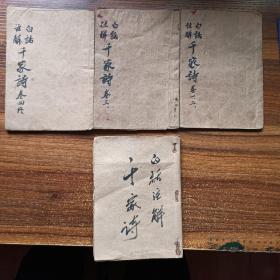 白話
註解
千家詩
卷四終
白話
註解
千家詩
卷三
白話
註解
千家詩
卷一二
白話註解
千家詩